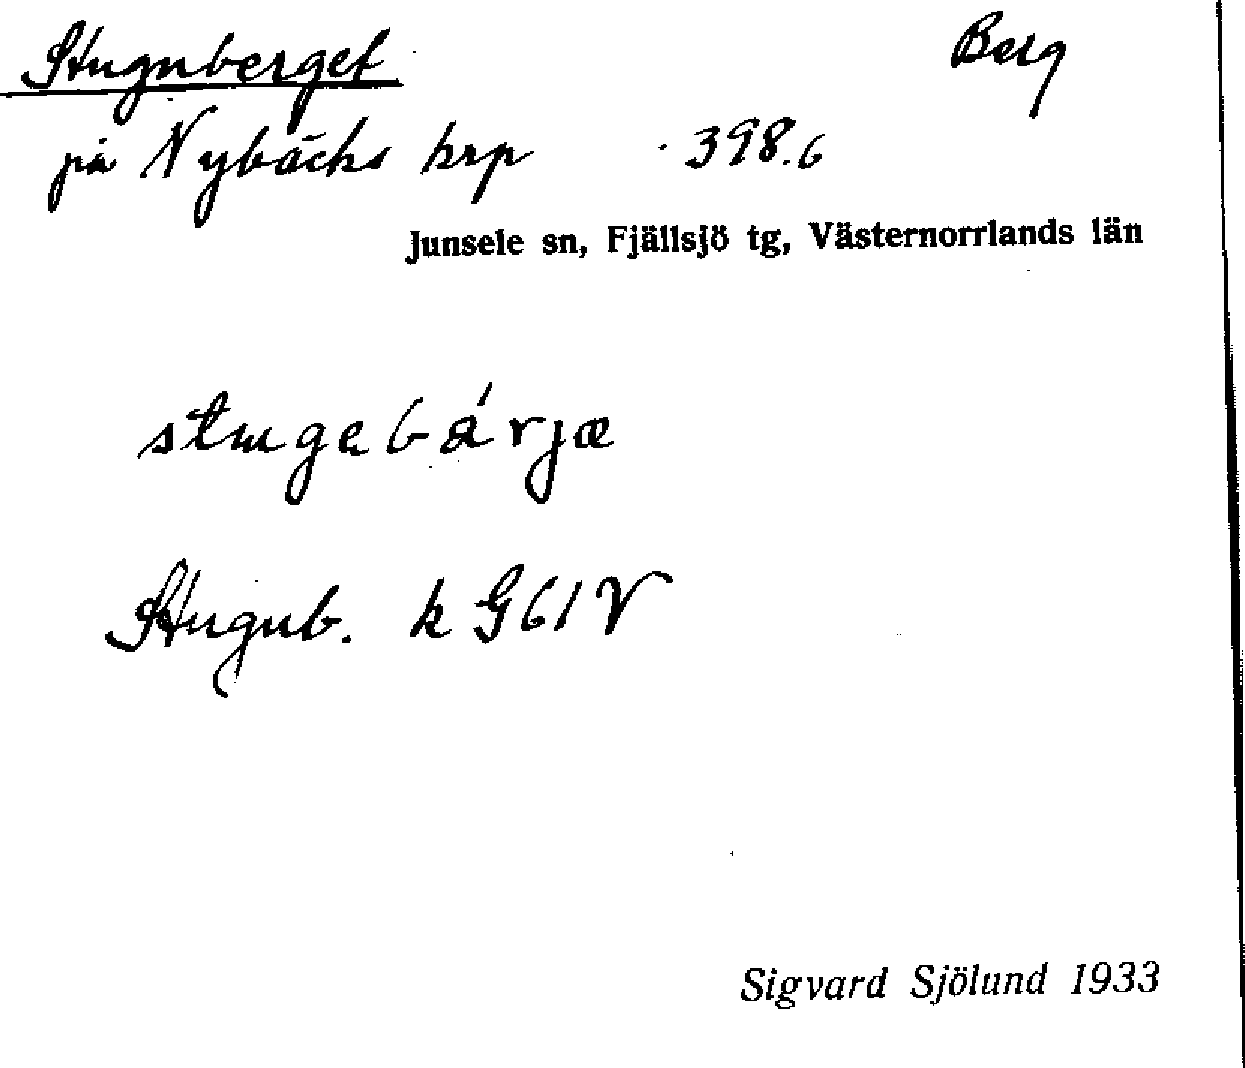 Stuguberget Berg
på Nybäcks krp 398.6
Junsele sn, Fjällsjö tg, Västernorrlands län
stugebárjæ
Stugub. k G61V
Sigvard Sjölund 1933